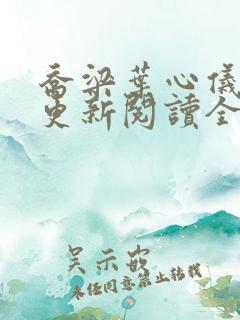 喬梁葉心儀
更新閱讀全
吳示嵌
未经同意禁止转载